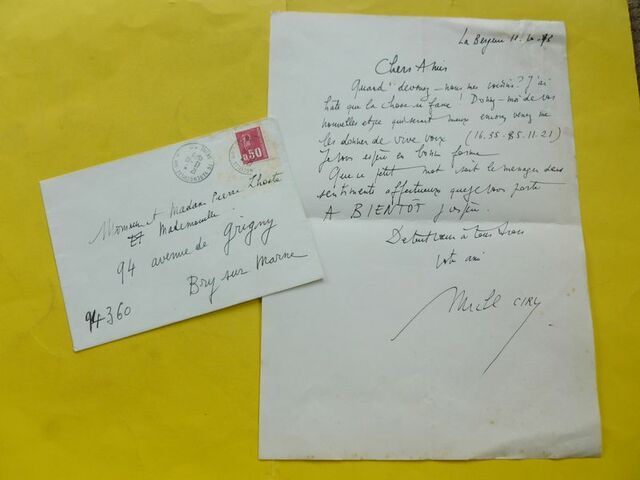 La Bergerie
Chers Amis
Quand devenez-nous mes voisins? J'ai
hâte que la chose se fasse! Donnez-moi de vos
nouvelles et ce qui serait mieux encore venez me
les donner de vive voix (16.35.85.11.21)
Je vous espère en bonne forme
Que ce petit mot soit le messager des
sentiments affectueux que je vous porte
A BIENTÔT j'espère.
De tout cœur à tous trois
votre ami
CIRY
0.50
Monsieur et Madame Pierre Lhoste
Et Mademoiselle
94 avenue de Grigny
Bry sur Marne
94360